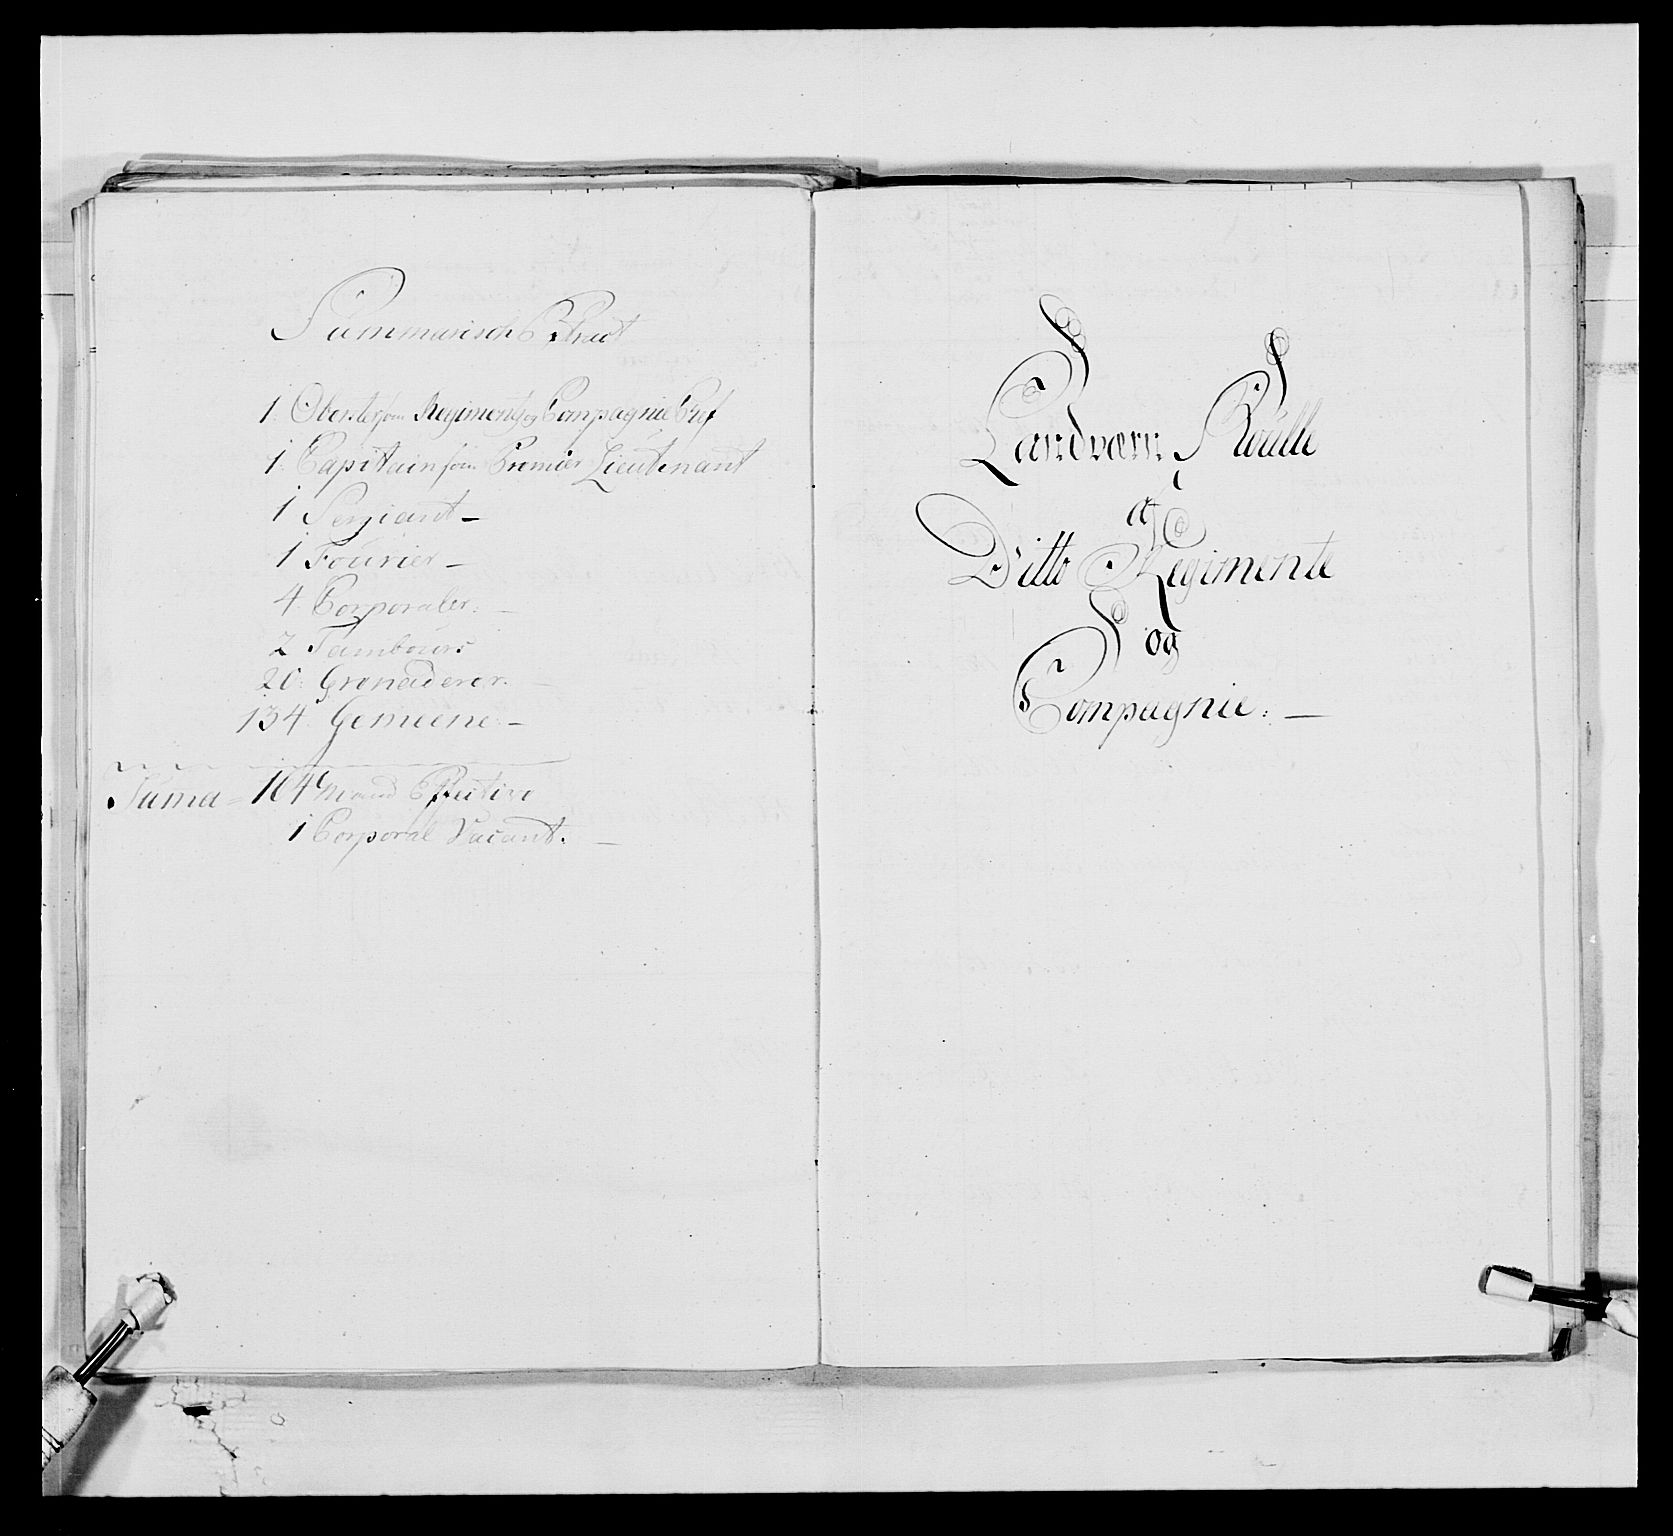 Summarisch Extract
1. Oberster som Regiments og Compagnie Chef
1. Capitain som Premier Lieutenant
1 Sergiant -
1 Fourier -
4. Corporaler. -
2 Tambours
20. Grenaderer. -
134. Gemeene. -
Suma = 164 Mand Effective
1 Corporal Vacant. -
Landværn Roulle
af
Ditto Regimente
og
Compagnie. -